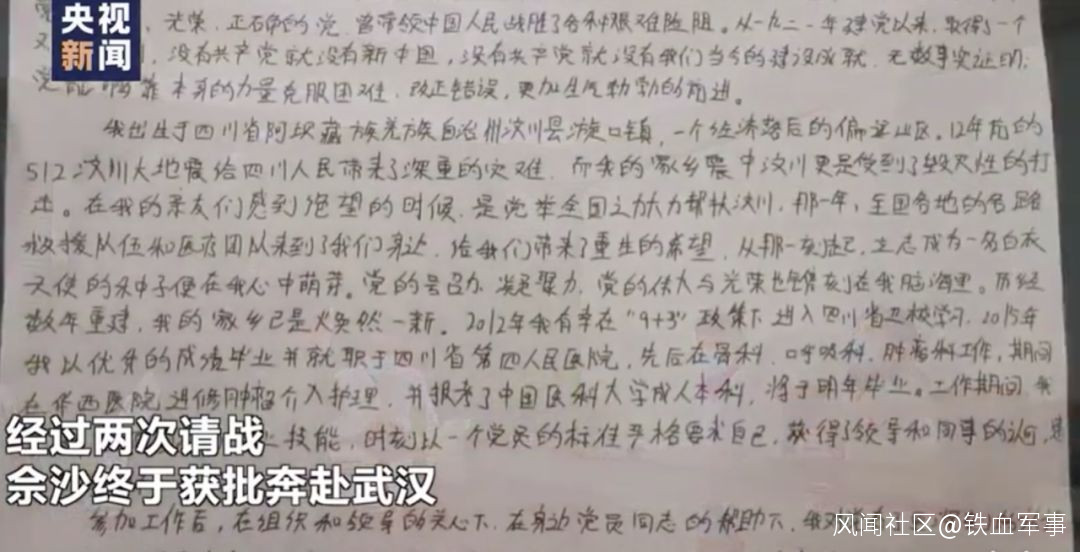 央视
新闻
光荣、正确的党，曾带领中国人民战胜了各种艰难险阻。从一九二一年建党以来，取得了一个
又 没有共产党就没有新中国，没有共产党就没有我们当今的建设成就，无数事实证明：
党能够靠本身的力量克服困难，改正错误，更加生气勃勃的前进。
我出生于四川省阿坝藏族羌族自治州汶川县漩口镇，一个经济落后的偏远山区。12年前的
512汶川大地震给四川人民带来了深重的灾难，而我的家乡震中汶川更是受到了毁灭性的打
击。在我的亲友们感到绝望的时候，是党举全国之力大力帮扶汶川，那一年，全国各地的各路
救援队伍和医疗团队来到了我们身边，给我们带来了重生的希望，从那一刻起，立志成为一名白衣
天使的种子便在我心中萌芽。党的号召力、凝聚力，党的伟大与光荣也镌刻在我脑海里。历经
数年重建，我的家乡已是火焕然一新。2012年我有幸在“9+3”政策下进入四川省卫校学习，2015年
我以优异的成绩毕业并就职于四川省第四人民医院，先后在骨科、呼吸科、肿瘤科工作，期间
在华西医院进修肿瘤介入护理，并报考了中国医科大学成人本科，将于明年毕业。工作期间，我
技能，时刻以一个党员的标准严格要求自己，获得了领导和同事的认可，是
参加工作后，在组织和领导的关心下，在身边党员同志的帮助下，我
经过两次请战
佘沙终于获批奔赴武汉
风闻社区@铁血军事